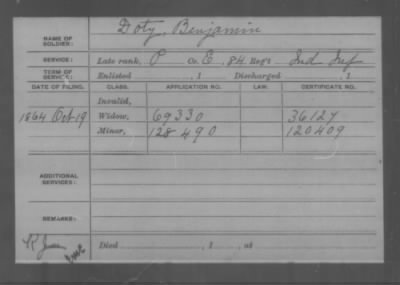 NAME OF SOLDIER: Doty, Benjamin
SERVICE: Late rank, P Co. E, 84 Reg't Ind Inf
TERM OF SERVICE: Enlisted , 1 Discharged , 1
DATE OF FILING. CLASS. APPLICATION NO. LAW. CERTIFICATE NO.
Invalid,
1864 Oct-19 Widow, 69330 36127
Minor, 128490 120409
ADDITIONAL SERVICES:
REMARKS:
Died , 1 , at